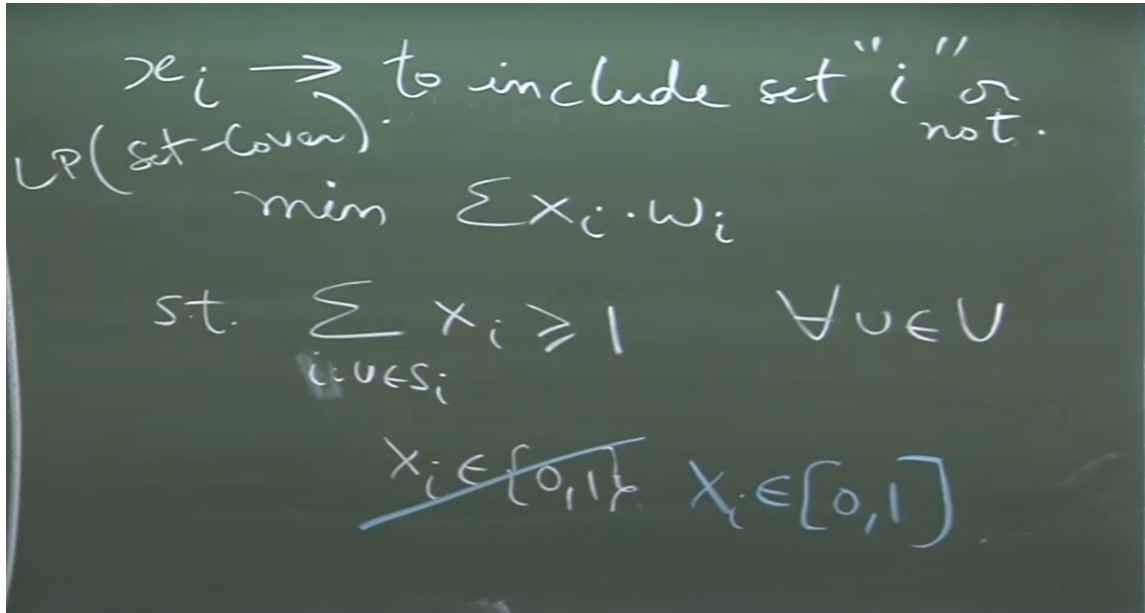 x_i → to include set "i" or
not.
LP(set-Cover).
min Σx_i·w_i
s.t. Σ x_i ≥ 1 ∀u∈U
i:u∈S_i
x_i∈{0,1}. x_i∈[0,1].